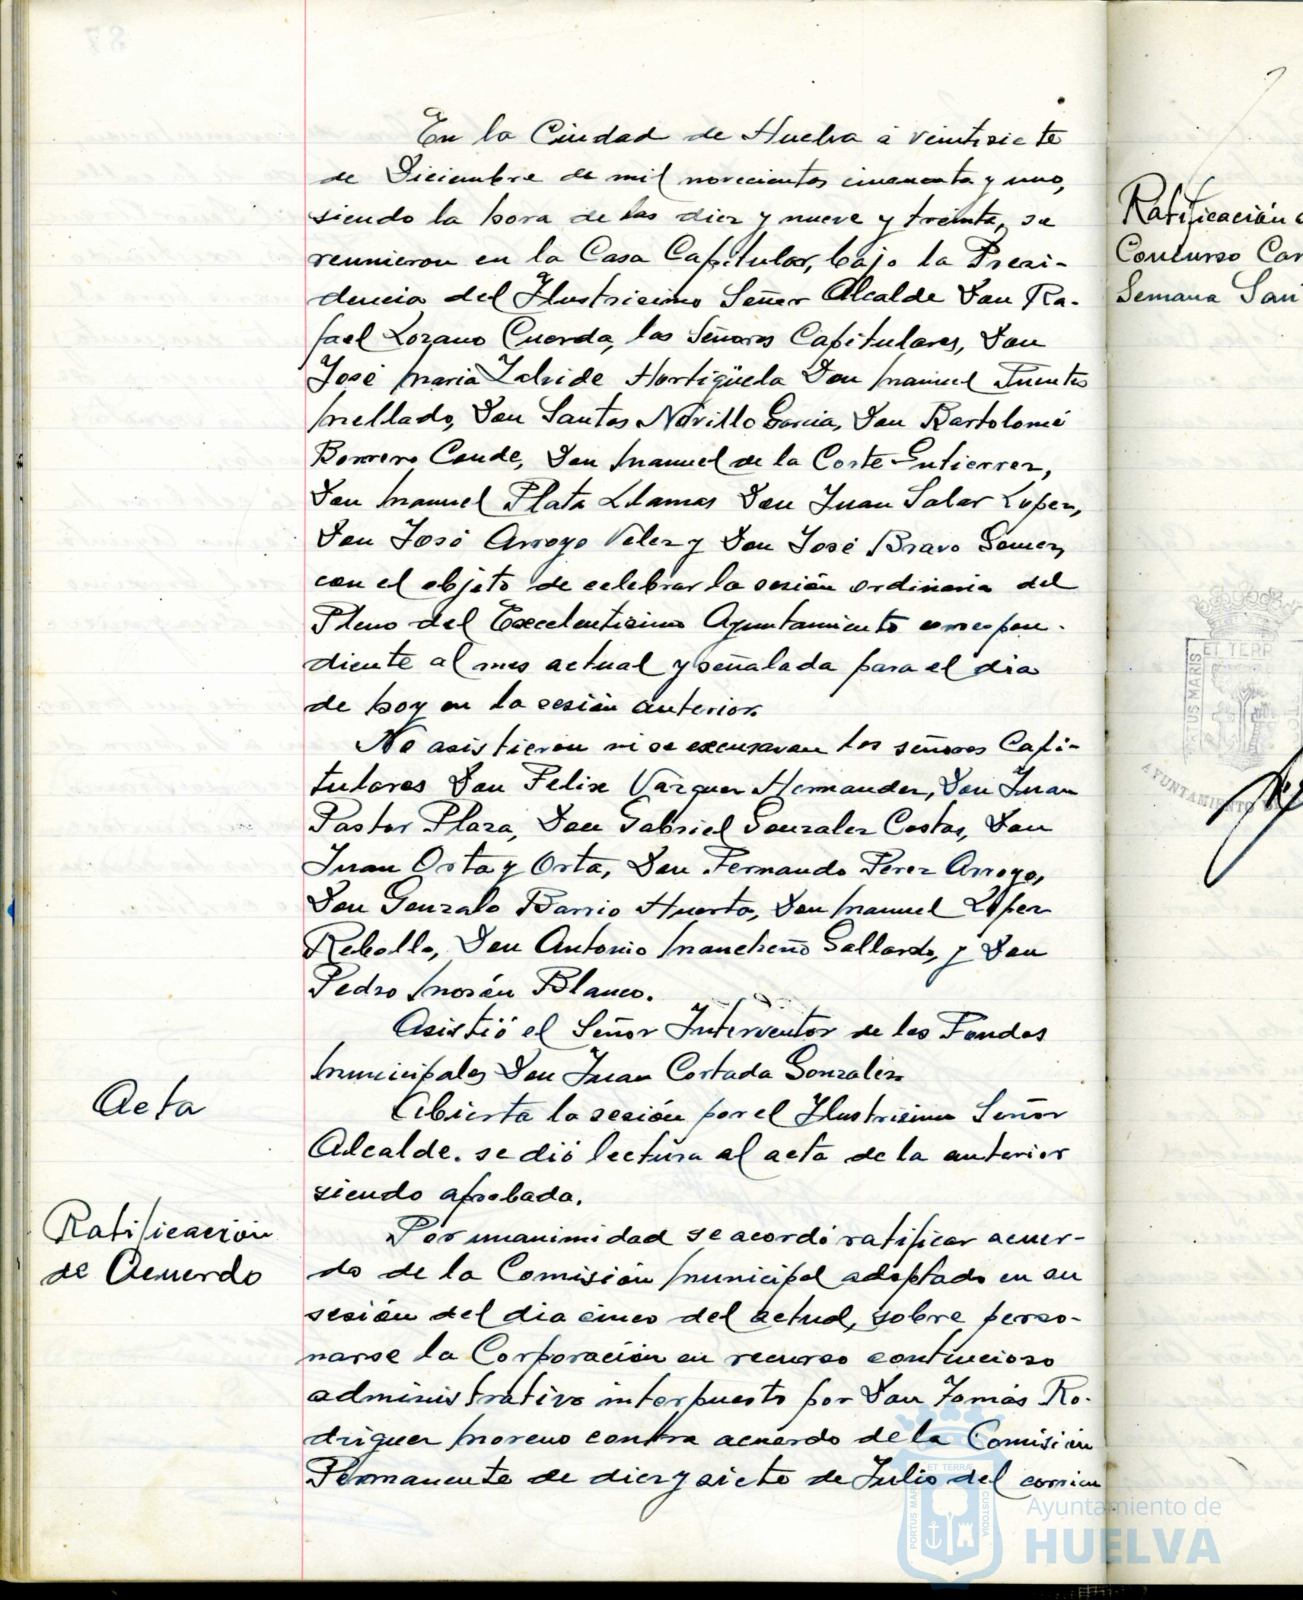 En la Ciudad de Huelva a veintisiete
de Diciembre de mil novecientos cincuenta y uno,
siendo la hora de las diez y nueve y treinta, se
reunieron en la Casa Capitular, bajo la Presi-
dencia del Ilustrisimo Señor Alcalde Don Ra-
fael Lozano Cuerda, los Señores Capitulares, Don
José Maria Hortigüela Don Manuel Fuentes
Mellado, Don Santos Novillo Garcia, Don Bartolomé
Borrero Conde, Don Manuel de la Corte Gutierrez,
Don Manuel Plata Llamas Don Juan Salar Lopez,
Don José Arroyo Velez y Don José Bravo Gomez,
con el objeto de celebrar la sesión ordinaria del
Pleno del Excelentisimo Ayuntamiento correspon-
diente al mes actual y señalada para el dia
de hoy en la sesión anterior.
No asistieron ni se excusaron los señores Capi-
tulares Don Felix Vazquez Hernandez, Don Juan
Pastor Plaza, Don Gabriel Gonzalez Costas, Don
Juan Orta y Orta, Don Fernando Perez Arroyo,
Don Gonzalo Barrio Huerta, Don Manuel Lopez
Rebollo, Don Antonio Mancheño Gallardo, y Don
Pedro Morón Blanco.
Asistió el Señor Interventor de los Fondos
Municipales Don Juan Cortada Gonzalez.
Acta
Abierta la sesión por el Ilustrisimo Señor
Alcalde. se dió lectura al acta de la anterior
siendo aprobada.
Ratificación
de Acuerdo
Por unanimidad se acordó ratificar acuer-
do de la Comisión Municipal adoptado en su
sesión del dia cinco del actual, sobre perso-
narse la Corporación en recurso contencioso
administrativo interpuesto por Don Tomás Ro-
driguez Moreno contra acuerdo de la Comisión
Permanente de diez y siete de Julio del corrien
Ratificación
Concurso Car
Semana San
ET TERR
PORTUS MARIS
AYUNTAMIENTO
PORTUS MARIS ET TERRAE CUSTODIA
Ayuntamiento de
HUELVA